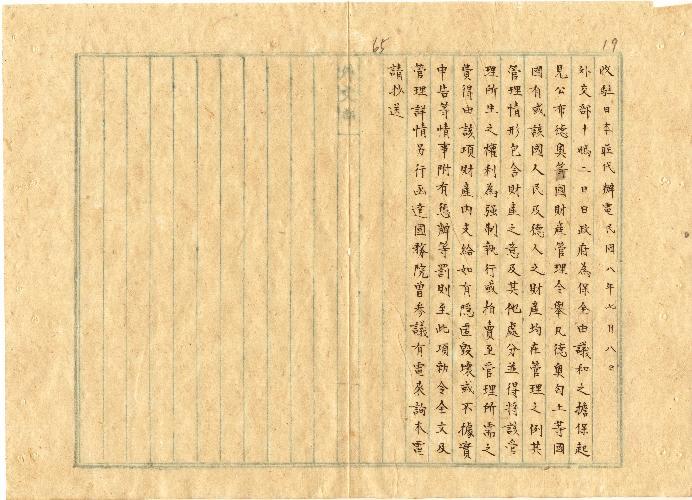 65
19
收駐日本莊代辦電民國八年七月八日
外交部十鴆二日日政府為保全由議和之擔保起
見公布德奧等國財產管理令舉凡德奧匈土等國
國有或該國人民及德人之財產均在管理之例其
管理情形包含財產之意及其他處分並得將該管
理所生之權利為強制執行或拍賣至管理所需之
費得由該項財產內支給如有隱匿毀壞或不據實
申告等情事附有懲辦等罰則至此項勅令全文及
管理詳情另行函達國務院曾參議有電來詢本電
請抄送